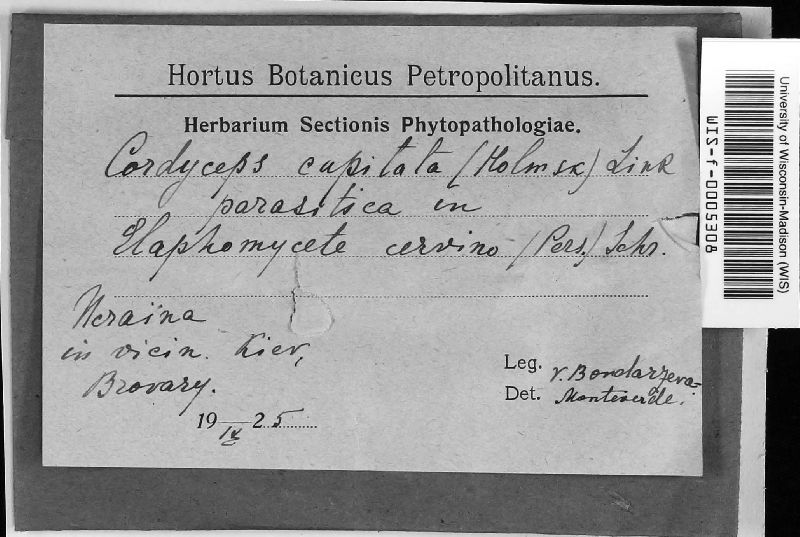 Hortus Botanicus Petropolitanus.
Herbarium Sectionis Phytopathologiae.
Cordyceps capitata (Holmsk) Link
parasitica in
Elaphomycete cervino (Pers.) Schr.
Ucraïna
in vicin. Kiev,
Brovary.
19 IX 25
Leg. V. Bondarzeva-
Det. Monteverde.
University of Wisconsin-Madison (WIS)
WIS-f-0005308